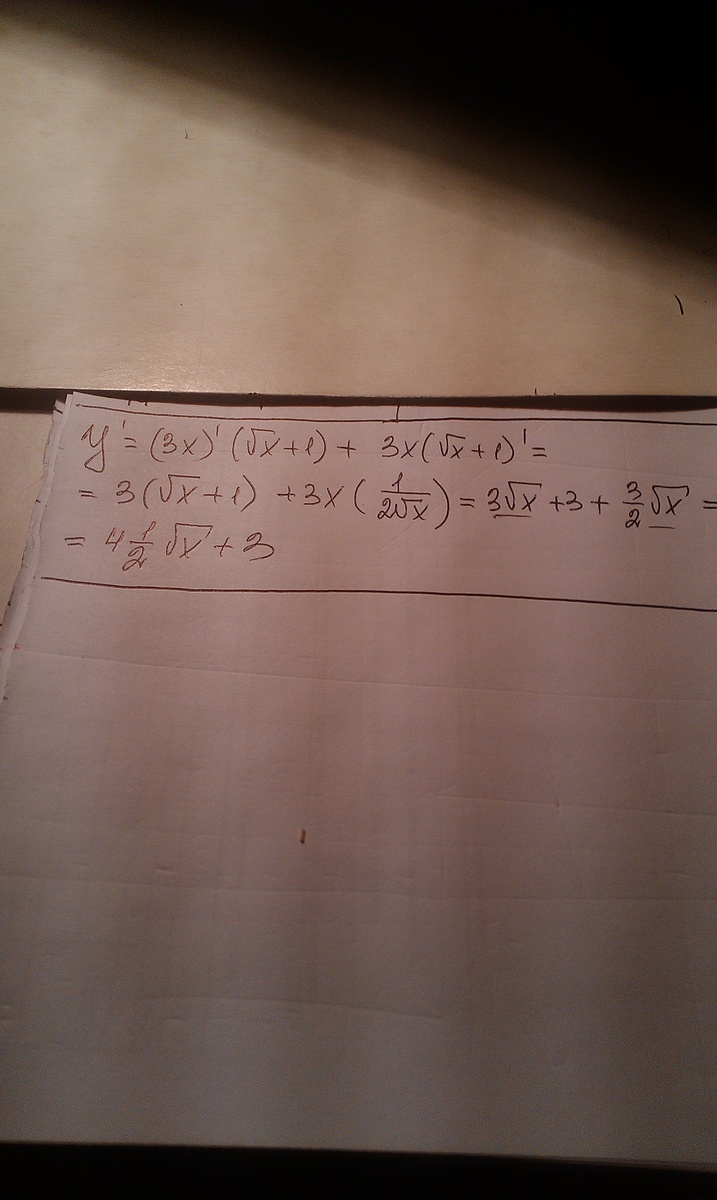 y' = (3x)' (√x+1) + 3x(√x+1)' =
= 3(√x+1) +3x(1/(2√x)) = 3√x+3+ 3/2 √x =
= 4 1/2 √x + 3